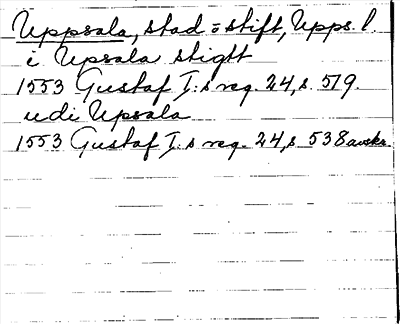 Uppsala, stad o stift, Upps. l.
i Upsala stigtt
1553 Gustaf I:s reg. 24, s. 519.
udi Upsala
1553 Gustaf I:s reg. 24, s 538 avskr.